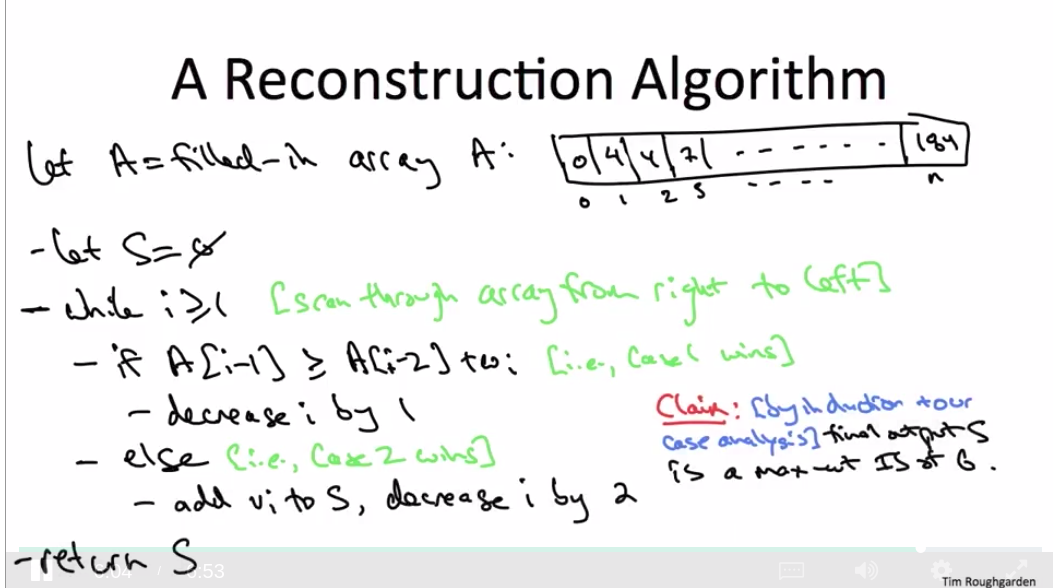 A Reconstruction Algorithm
Let A = filled-in array A: 0 4 4 7 - - - - - - - 184
0 1 2 3 - - - - n
- Let S = ∅
- while i ≥ 1 [scan through array from right to left]
- if A[i-1] ≥ A[i-2] + wi [i.e., Case 1 wins]
- decrease i by 1
- else [i.e., Case 2 wins]
- add vi to S, decrease i by 2
- return S
Claim: [by induction + our
case analysis] final output S
is a max-wt IS of G.
:53
Tim Roughgarden